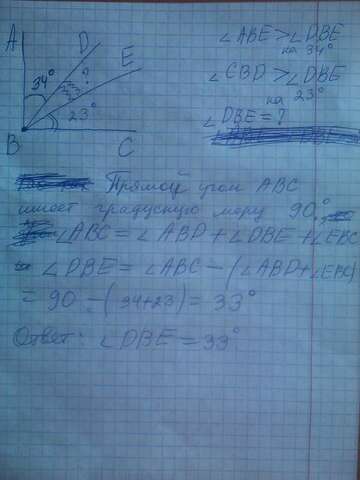 A
D
E
34°
?
23°
B
C
∠ABE > ∠DBE
на 34°
∠CBD > ∠DBE
на 23°
∠DBE = ?
Прямой угол ABC
имеет градусную меру 90°,
∠ABC = ∠ABD + ∠DBE + ∠EBC
∠DBE = ∠ABC - (∠ABD + ∠EBC)
= 90 - (34+23) = 33°
Ответ: ∠DBE = 33°